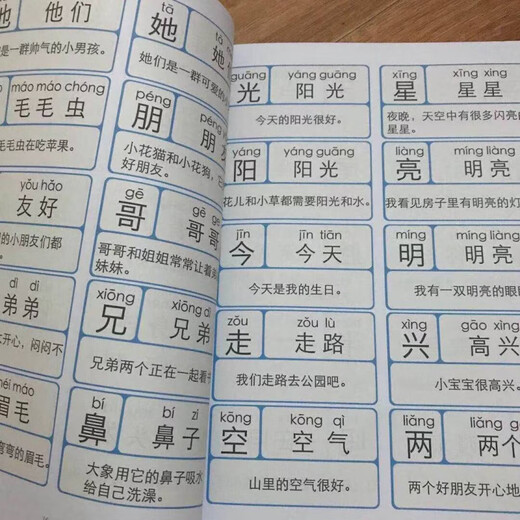 他们
是一群帅气的小男孩。
máo máo chóng
毛毛虫
毛毛虫在吃苹果。
yǒu hǎo
友好
的小朋友们都
dì di
弟弟
开心,闷闷不
méi máo
眉毛
弯弯的眉毛。
tā
她
她们是一群可爱的小
péng
朋
朋友
小花猫和小花狗,它
好朋友。
gē
哥
gē ge
哥哥
哥哥和姐姐常常让着弟
妹妹。
xiōng
兄
xiōng dì
兄弟
兄弟两个正在一起看书
bí
鼻
bí zi
鼻子
大象用它的鼻子吸水
给自己洗澡。
guāng
光
yáng guāng
阳光
今天的阳光很好。
yáng
阳
yáng guāng
阳光
花儿和小草都需要阳光和水。
jīn
今
jīn tiān
今天
今天是我的生日。
zǒu
走
zǒu lù
走路
我们走路去公园吧。
kōng
空
kōng qì
空气
山里的空气很好。
xīng
星
xīng xing
星星
夜晚,天空中有很多闪亮的
星星。
liàng
亮
míng liàng
明亮
我看见房子里有明亮的灯
míng
明
míng liàng
明亮
我有一双明亮的眼
xìng
兴
gāo xìng
高兴
小宝宝很高兴。
liǎng
两
liǎng g
两个
两个好朋友开心地